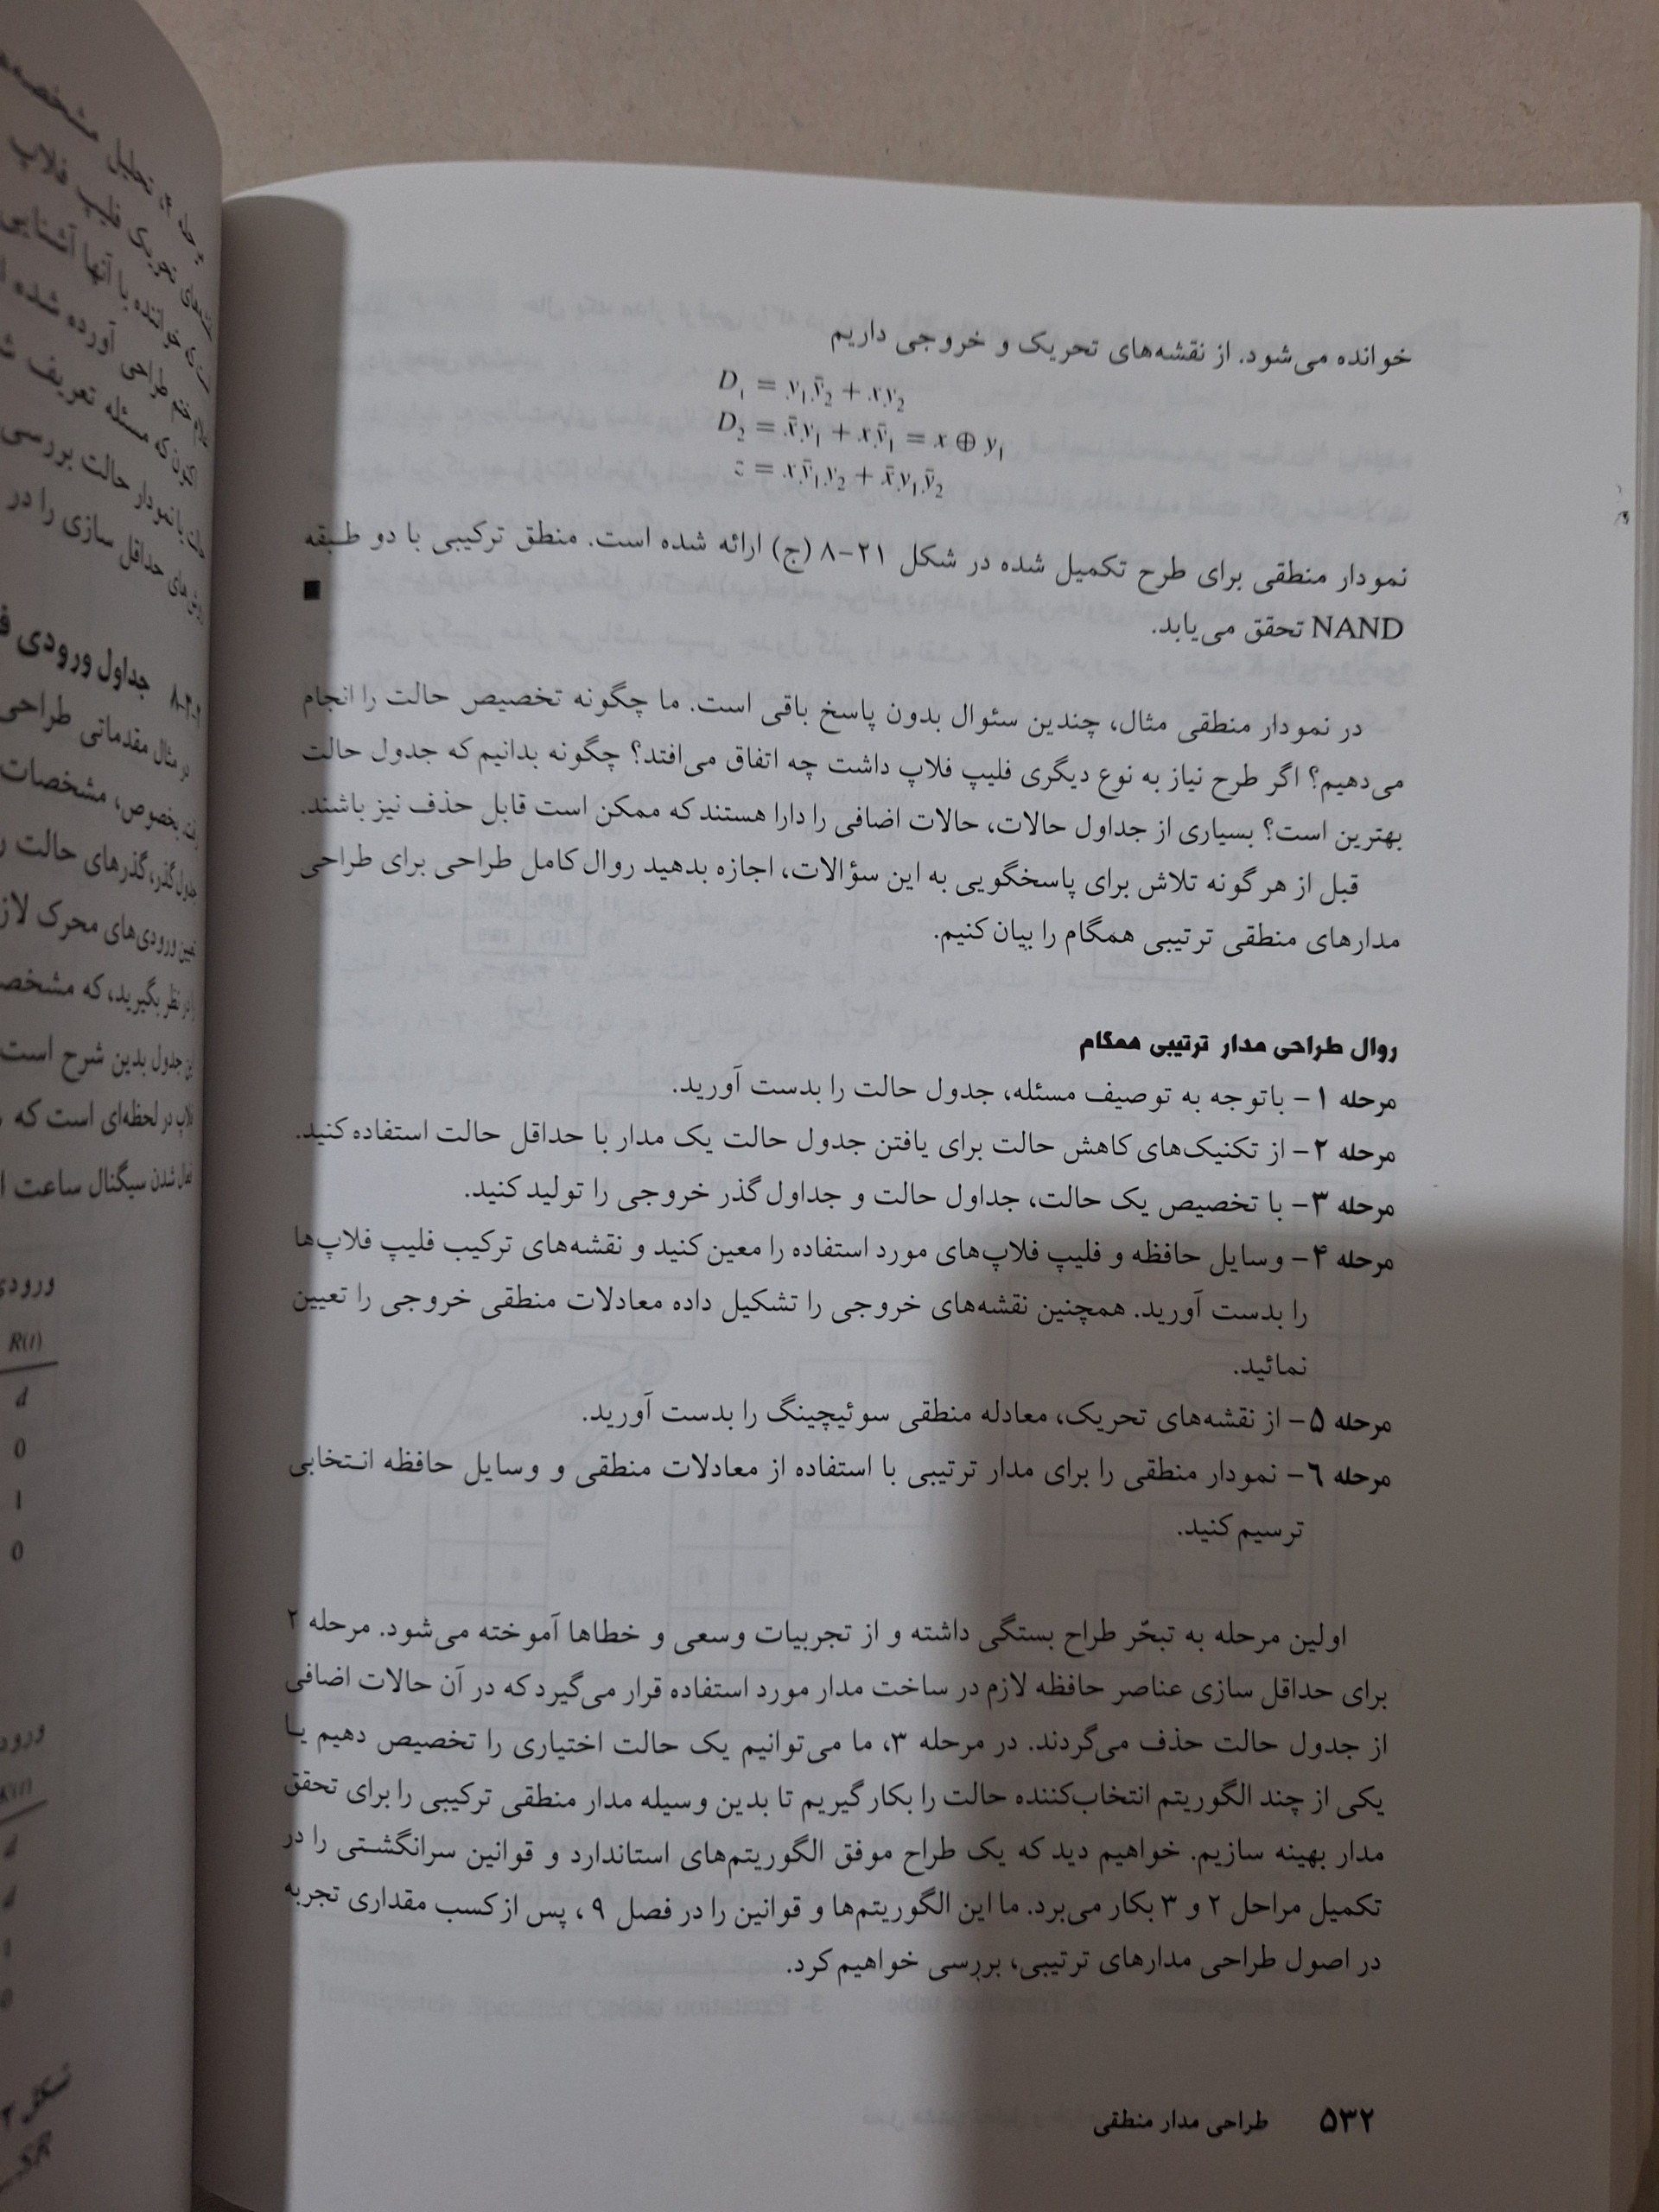 خوانده می‌شود. از نقشه‌های تحریک و خروجی داریم
D₁ = y₁ȳ₂ + xy₂
D₂ = x̄y₁ + xȳ₁ = x ⊕ y₁
z = xȳ₁y₂ + x̄y₁ȳ₂
نمودار منطقی برای طرح تکمیل شده در شکل ۲۱-۸ (ج) ارائه شده است. منطق ترکیبی با دو طبقه
NAND تحقق می‌یابد. ■
در نمودار منطقی مثال، چندین سئوال بدون پاسخ باقی است. ما چگونه تخصیص حالت را انجام
می‌دهیم؟ اگر طرح نیاز به نوع دیگری فلیپ فلاپ داشت چه اتفاق می‌افتد؟ چگونه بدانیم که جدول حالت
بهترین است؟ بسیاری از جداول حالات، حالات اضافی را دارا هستند که ممکن است قابل حذف نیز باشند.
قبل از هر گونه تلاش برای پاسخگویی به این سؤالات، اجازه بدهید روال کامل طراحی برای طراحی
مدارهای منطقی ترتیبی همگام را بیان کنیم.
روال طراحی مدار ترتیبی همگام
مرحله ۱- باتوجه به توصیف مسئله، جدول حالت را بدست آورید.
مرحله ۲- از تکنیک‌های کاهش حالت برای یافتن جدول حالت یک مدار با حداقل حالت استفاده کنید.
مرحله ۳- با تخصیص یک حالت، جداول حالت و جداول گذر خروجی را تولید کنید.
مرحله ۴- وسایل حافظه و فلیپ فلاپ‌های مورد استفاده را معین کنید و نقشه‌های ترکیب فلیپ فلاپ‌ها
را بدست آورید. همچنین نقشه‌های خروجی را تشکیل داده معادلات منطقی خروجی را تعیین
نمائید.
مرحله ۵- از نقشه‌های تحریک، معادله منطقی سوئیچینگ را بدست آورید.
مرحله ۶- نمودار منطقی را برای مدار ترتیبی با استفاده از معادلات منطقی و وسایل حافظه انتخابی
ترسیم کنید.
اولین مرحله به تبحّر طراح بستگی داشته و از تجربیات وسعی و خطاها آموخته می‌شود. مرحله ۲
برای حداقل سازی عناصر حافظه لازم در ساخت مدار مورد استفاده قرار می‌گیرد که در آن حالات اضافی
از جدول حالت حذف می‌گردند. در مرحله ۳، ما می‌توانیم یک حالت اختیاری را تخصیص دهیم یا
یکی از چند الگوریتم انتخاب‌کننده حالت را بکار گیریم تا بدین وسیله مدار منطقی ترکیبی را برای تحقق
مدار بهینه سازیم. خواهیم دید که یک طراح موفق الگوریتم‌های استاندارد و قوانین سرانگشتی را در
تکمیل مراحل ۲ و ۳ بکار می‌برد. ما این الگوریتم‌ها و قوانین را در فصل ۹ ، پس از کسب مقداری تجربه
در اصول طراحی مدارهای ترتیبی، بررسی خواهیم کرد.
۵۳۲ طراحی مدار منطقی
تحلیل
تحریک فلیپ فلاپ
خواننده با آنها آشنایی
طراحی آورده شده
که مسئله تعریف
با نمودار حالت بررسی
حداقل سازی را در
جداول ورودی
در مثال مقدماتی طراحی
بخصوص، مشخصات
جدول گذر، گذرهای حالت
ورودی‌های محرک
در نظر بگیرید، که
این جدول بدین شرح است
در لحظه‌ای است که
شدن سیگنال ساعت
R(t)
d
0
1
0